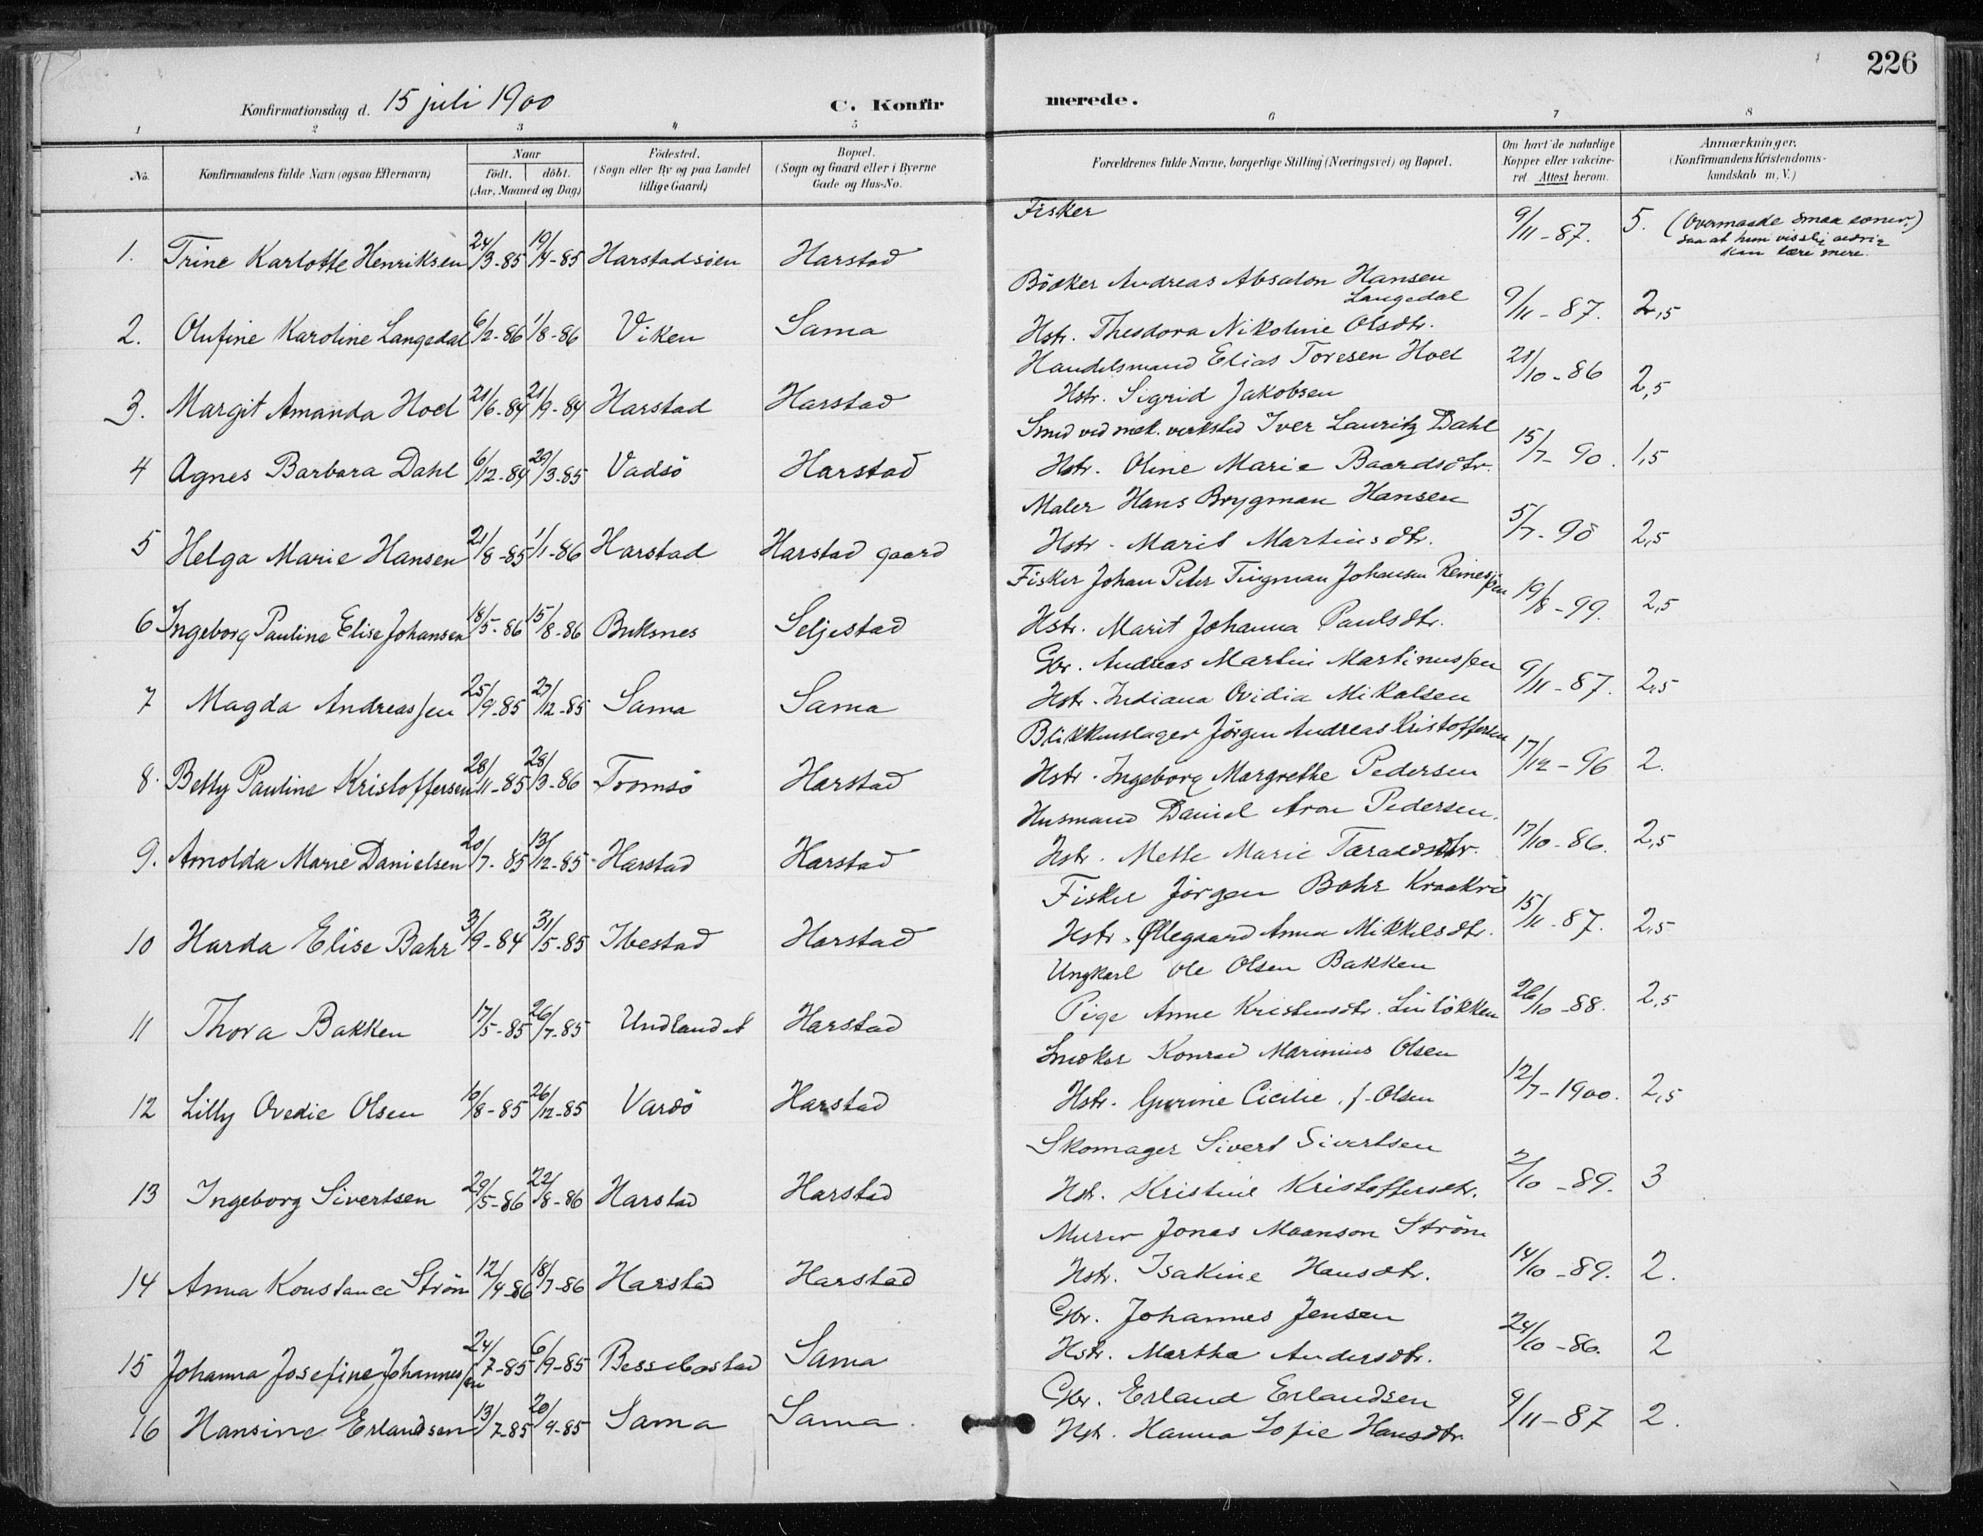 226
Konfirmationsdag d. 15 juli 1900
C. Konfirmerede.
1 2 3 4 5 6 7 8
No.
Konfirmandens fulde Navn (ogsaa Efternavn)
Naar
født. døbt.
(Aar, Maaned og Dag)
Fødested.
(Sogn eller By og paa Landet
tillige Gaard)
Bopæl.
(Sogn og Gaard eller i Byerne
Gade og Hus-No.
Forældrenes fulde Navne, borgerlige Stilling (Næringsvei) og Bopæl.
Om havt de naturlige
Kopper eller vakcine-
ret Attest herom.
Anmærkninger.
(Konfirmandens Kristendoms-
kundskab m. V.)
Fisker
1. Trine Karlotte Henriksen 24/3-85 19/4-85 Harstadsöen Harstad 9/11-87. 5. (Overmaade smaa evner)
saa at hun visslig aldrig
kan lære mere.
Bödker Andreas Absalon Hansen
Langedal
2. Olufine Karoline Langedal 6/2-86 1/8-86 Viken Sama Hstr. Theodora Nikoline Olsdtr. 9/11-87. 2,5
Handelsmand Elias Toresen Hoel
3. Margit Amanda Hoel 21/6-84 21/9-84 Harstad Harstad Hstr. Sigrid Jakobsen 21/10-86 2,5
Smed ved mek. verksted Iver Lauritz Dahl
4 Agnes Barbara Dahl 6/12-84 29/3-85 Vadsö Harstad Hstr. Oline Marie Baardsdtr. 15/7-90. 1,5
Maler Hans Brygman Hansen
5 Helga Marie Hansen 21/8-85 1/1-86 Harstad Harstad gaard Hstr. Marit Martinsdtr. 5/7-98 2,5
Fisker Johan Peter Tingman Johansen
6 Ingeborg Pauline Elise Johansen 18/5-86 15/8-86 Buksnes Seljestad Hstr. Marit Johanna Paulsdtr. 19/8-99. 2,5
Gbr. Andreas Martin Martinussen
7 Magda Andreassen 25/9-85 27/12-85 Sama Sama Hstr. Indiana Ovidia Mikalsen 9/11-87. 2,5
Blikkenslager Jörgen Andreas Kristoffersen
8. Betty Pauline Kristoffersen 28/11-85 28/3-86 Tromsö Harstad Hstr. Ingeborg Margrethe Pedersen 17/12-96 2.
Husmand Daniel Aron Pedersen.
9. Arnolda Marie Danielsen 20/7-85 13/12-85 Harstad Harstad Hstr. Mette Marie Taraldsdtr. 17/10-86. 2,5
Fisker Jörgen Bahr Kraakrö
10 Harda Elise Bahr 3/9-84 31/5-85 Ibestad Harstad Hstr. Øllegaard Anna Mikkelsdtr. 15/11-87. 2,5
Ungkarl Ole Olsen Bakken
11 Thora Bakken 17/5-85 26/7-85 Undlandet Harstad Pige Anne Kristensdtr. Linlökken 26/10-88. 2,5
Snedker Konrad Marinius Olsen
12 Lilly Ovedie Olsen 10/8-85 26/12-85 Vardö Harstad Hstr. Gurine Cicilie f. Olsen 12/7-1900. 2,5
Skomager Sivert Sivertsen
13 Ingeborg Sivertsen 29/5-86 22/8-86 Harstad Harstad Hst. Kristine Kristoffersdtr. 2/10-89. 3
Murer Jonas Maanson Ström
14 Anna Konstance Ström 12/4-86 18/7-86 Harstad Harstad Hstr. Isakine Hansdtr. 14/10-89. 2.
Gbr. Johannes Jensen
15 Johanna Josefine Johannessen 24/7-85 6/9-85 Bessebostad Sama Hstr. Martha Andersdtr. 24/10-86. 2
Gbr. Erland Erlandsen
16 Hansine Erlandsen 13/7-85 20/9-85 Sama Sama. Hstr. Hanna Sofie Hansdtr. 9/11-87 2.